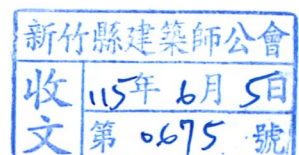 新竹縣建築師公會
收文
115年6月5日
第0675號